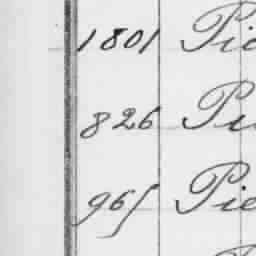 1801 Pie
826 Pu
965 Pie